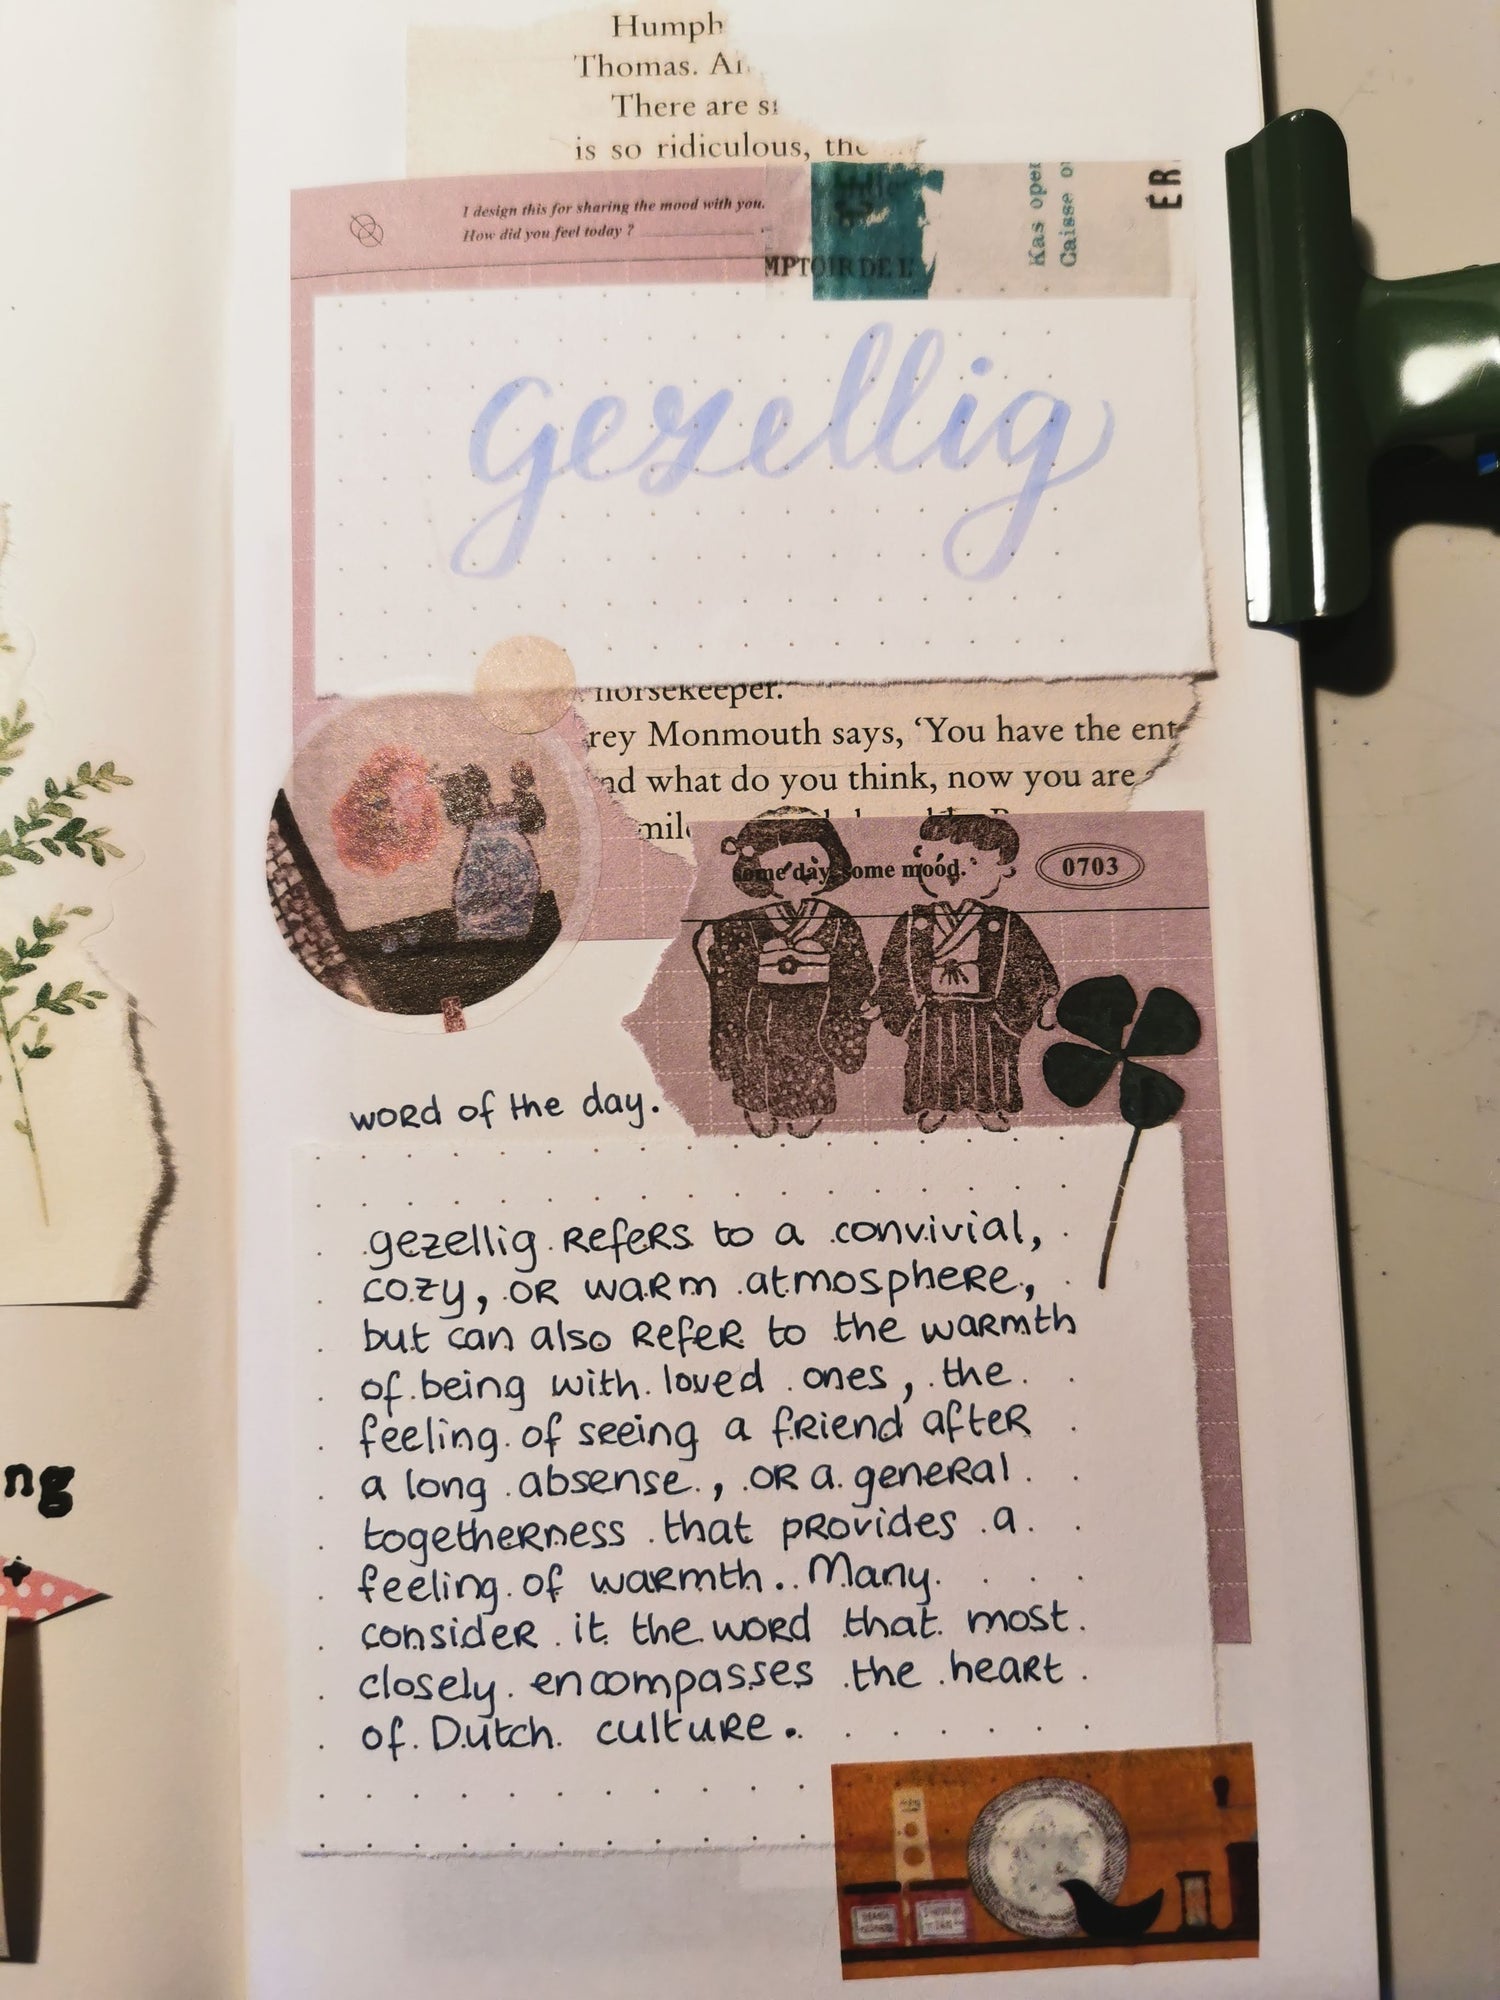 Humph
Thomas.
There are
is so ridiculous,
I design this for sharing the mood with you.
How did you feel today ?
MPTOIR DE L'
Kas open
Caisse
ER
gezellig
horsekeeper.
rey Monmouth says, ‘You have the ent
nd what do you think, now you are
some day, some mood.
0703
word of the day.
gezellig refers to a convivial,
cozy, or warm atmosphere,
but can also refer to the warmth
of being with loved ones, the
feeling of seeing a friend after
a long absense, or a general
togetherness that provides a
feeling of warmth. Many
consider it the word that most
closely encompasses the heart
of Dutch culture.
ng